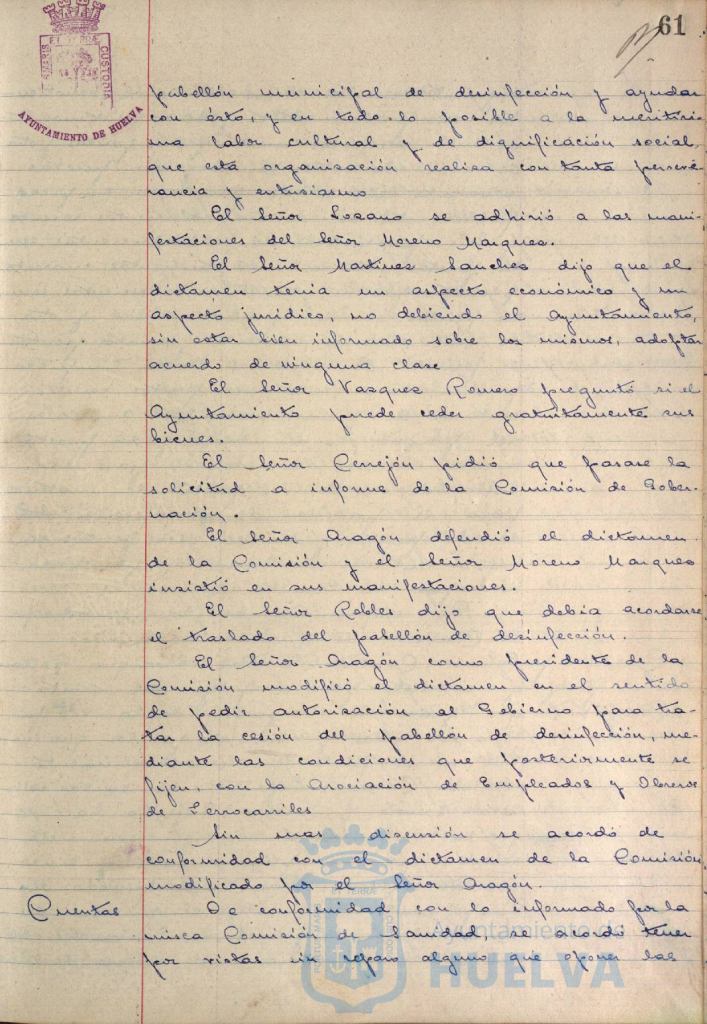 61
PORTUS MARIS ET TERRAE CUSTODIA
AYUNTAMIENTO DE HUELVA
pabellón municipal de desinfección y ayudar
con ésto, y en todo lo posible a la meritísi-
ma labor cultural y de dignificación social,
que esta organización realisa con tanta perseve-
rancia y entusiasmo
El Señor Lozano se adhirió a las mani-
festaciones del Señor Moreno Marquez.
El Señor Martinez Sanchez dijo que el
dictamen tenia un aspecto económico y un
aspecto jurídico, no debiendo el Ayuntamiento,
sin estar bien informado sobre los mismos, adoptar
acuerdo de ninguna clase
El Señor Vazquez Romero preguntó si el
Ayuntamiento puede ceder gratuitamente sus
bienes.
El Señor Cerrejón pidió que pasase la
solicitud a informe de la Comisión de Gober-
nación.
El Señor Aragón defendió el dictamen
de la Comisión y el Señor Moreno Marquez
insistió en sus manifestaciones.
El Señor Robles dijo que debia acordarse
el traslado del pabellón de desinfección.
El Señor Aragón como presidente de la
Comisión modificó el dictamen en el sentido
de pedir autorización al Gobierno para tra-
tar la cesión del pabellón de desinfección, me-
diante las condiciones que posteriormente se
fijen, con la Asociación de Empleados y Obreros
de Ferrocarriles
Sin mas discusión se acordó de
conformidad con el dictamen de la Comisión
modificado por el Señor Aragón.
Cuentas De conformidad con lo informado por la
misma Comisión de Sanidad, se acordó tener
por vistas sin reparo alguno que oponer las
Ayuntamiento de
HUELVA